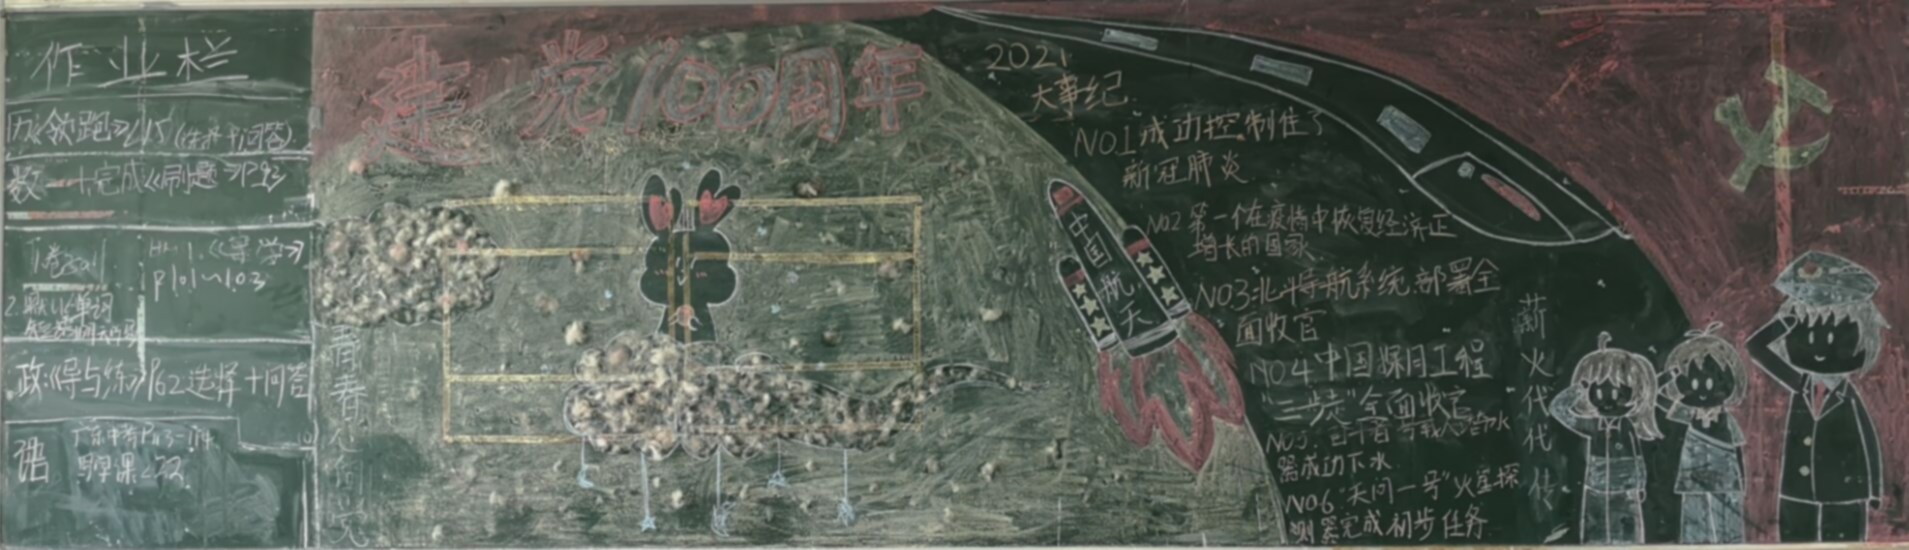 作业栏
历《领跑》L15(选择+问答)
数一十完成《刷题》P92
《导学》
P101~103
政《导与练》P62选择+问答
语
建党100周年
青春心向党
2021
大事纪
NO1成功控制住了
新冠肺炎
NO2第一个在疫情中恢复经济正
增长的国家
NO3北斗导航系统部署全
面收官
NO4中国探月工程
"三步走"全面收官
NO5."奋斗者"号载人潜水
器成功下水
NO6"天问一号"火星探
测器完成初步任务
中国航天
薪火代代传